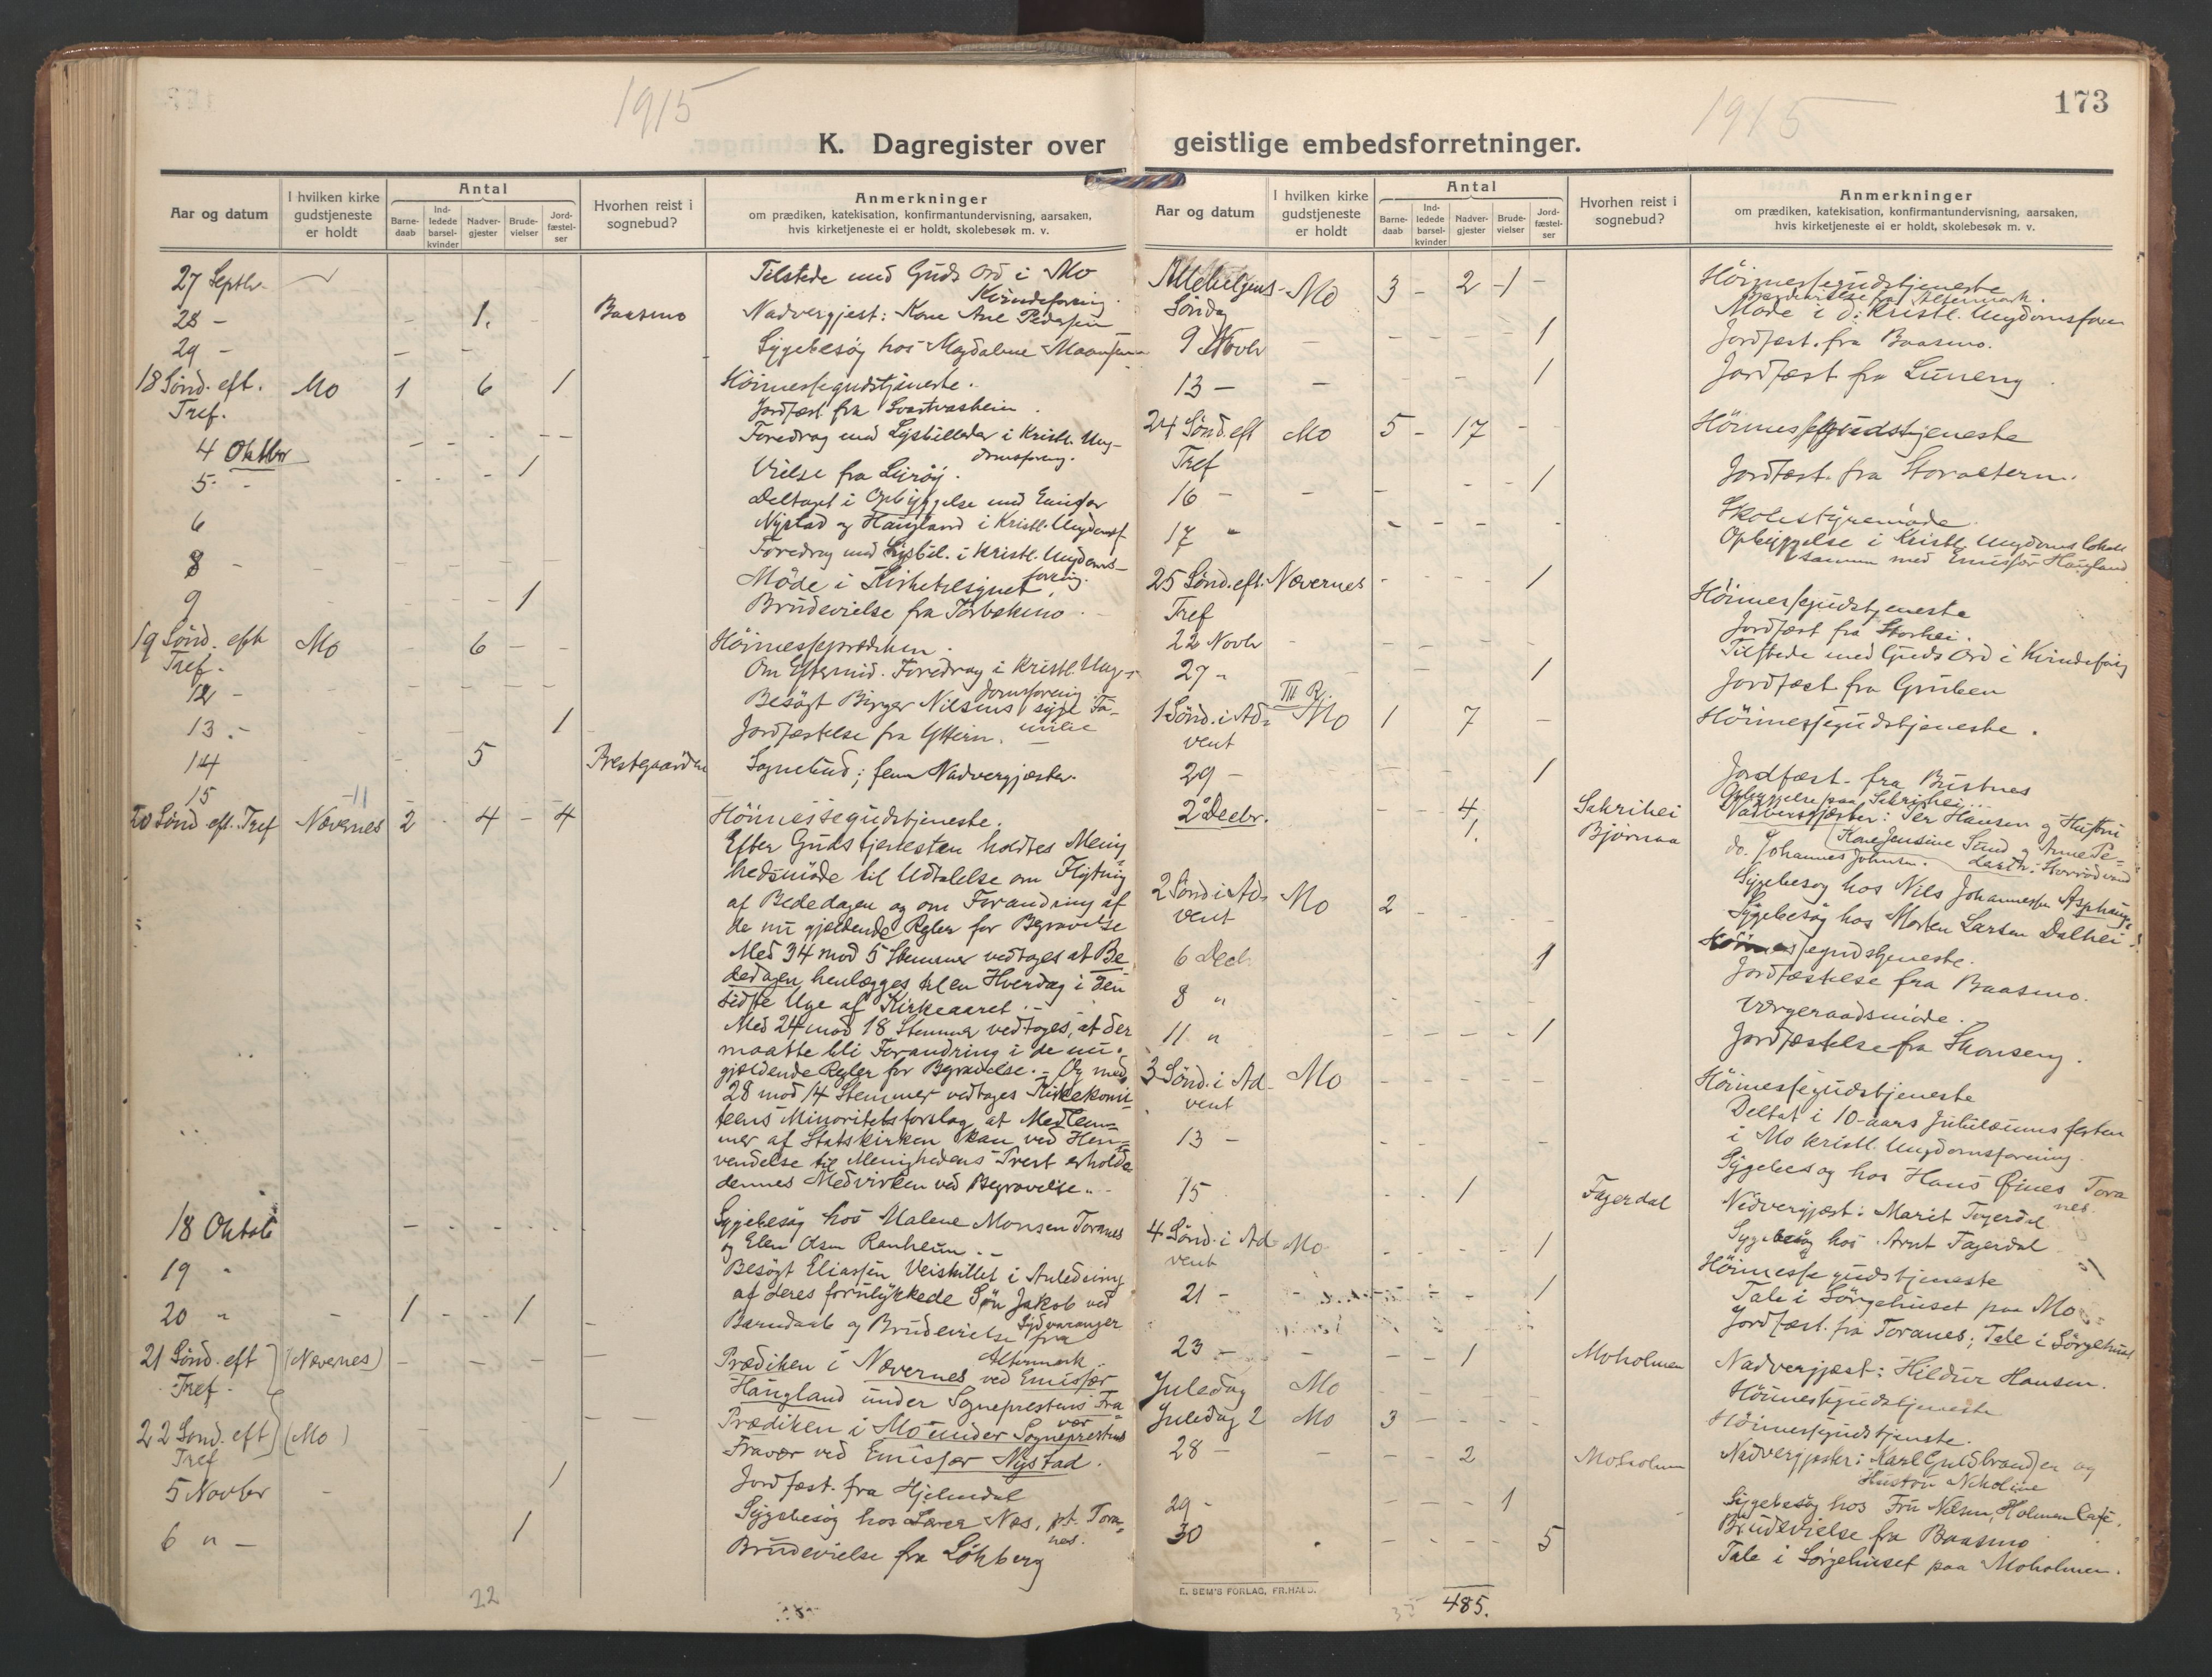 1915
K. Dagregister over
Aar og datum
I hvilken kirke gudstjeneste er holdt
Antal
Barne-daab
Ind-ledede barsel-kvinder
Nadver-gjester
Brude-vielser
Jord-fæstel-ser
Hvorhen reist i sognebud?
Anmerkninger
om prædiken, katekisation, konfirmantundervisning, aarsaken,
hvis kirketjeneste ei er holdt, skolebesøk m. v.
27 Septbr. Tilstede med Guds Ord i Mo
Kvindeforening.
28 - 1. Baasmo Nadvergjest: Kone Ane Pedersen
29 - Sygebesøg hos Magdalene
18 Sönd. eft. Mo 1 6 1 Höimessegudstjeneste.
Tref. Jordfæst. fra Svartvasheim.
4 Oktbr Foredrag med Lysbilleder i Kristl. Ung-
domsforeng.
5 - 1 Vielse fra Luröy.
6 Deltaget i Opbyggelse med Emissær
Nystad og Haugland i Kristl. Ungdomsf.
8 - Foredrag med Lysbil. i Kristl. Ungdoms-
forening.
Möde i Kirketilsynet.
9 1 Brudevielse fra Torbekmo.
19 Sönd. eft Mo 6 - - Höimesseprædiken.
Tref. Om Eftermid. Foredrag i Kristl. Ung-
domsforening.
12 - Besögt Birger Nilsens syge Fa-
milie
13. - 1 Jordfæstelse fra Ytteren.
14 5 Prestgaarden Sognebud; fem Nadvergjester.
15
20 Sönd eft. Tref Nævernes 2 - 4 - 4 Höimessegudstjeneste.
Efter Gudstjenesten holdtes Menig-
hedsmöde til Udtalelse om Flytning
af Bededagen og om Forandring af
de nu gjældende Regler for Begravelse
Med 34 mod 5 Stemmer vedtages at Be
dedagen henlægges til en Hverdag i den
sidste Uge af Kirkeaaret. -
Med 24 mod 18 Stemmer vedtages, at der
maatte bli Forandring i de nu
gjældende Regler for Begravelse. - Og med
28 mod 14 Stemmer vedtages Kirkekomi-
teens Minoritetsforslag at Medlem-
mer af Statskirken kan ved Hen-
vendelse til Menighedens Prest erholde
dennes Medvirken ved Begravelse. -
18 Oktob Sygebesøg hos Malene Monsen Toranes
og Elen Olsen Ranheim. -
19 " Besögt Eliassen Veiskillet i Anledning
af deres forulykkede Sön Jakob ved
Sydvaranger
20 " - 1 - - 1 Barnedaab og Brudevielse fra
Altermark.
21 Sönd. eft (Nævernes) Prædiken i Nævernes ved Emissær
Tref. Haugland under Sogneprestens Fra-
vær
22 Sönd. eft (Mo) Prædiken i Mo under Sogneprestens
Tref Fravær ved Emissær Nystad.
5 Novbr 1 Jordfæst. fra Hjelmdal
Sygebesög hos Lærer Næs, pt. Tora-
nes.
6 " - 1 Brudevielse fra Lökberg
22
1915
173
geistlige embedsforretninger.
Aar og datum
I hvilken kirke gudstjeneste er holdt
Antal
Barne-daab
Ind-ledede barsel-kvinder
Nadver-gjester
Brude-vielser
Jord-fæstel-ser
Hvorhen reist i sognebud?
Anmerkninger
om prædiken, katekisation, konfirmantundervisning, aarsaken,
hvis kirketjeneste ei er holdt, skolebesøk m. v.
Allehelgens- Mo 3 - 2 - 1 - Höimessegudstjeneste
Söndag Brudevielse fra Altermark.
Møde i d. Kristl. Ungdomsforen
9 Novbr 1 Jordfæst. fra Baasmo.
13 - 1 Jordfæst fra Luneng
24 Sönd. eft Mo 5 - 17 - - Höimessegudstjeneste
Tref
16 - 1 Jordfæst. fra Storaltern.
17 " Skolestyremøde.
Opbyggelse i Kristl. Ungdoms lokale
sammen med Emissær Haugland
25 Sönd. eft. Nævernes 1 Höimessegudstjeneste
Tref Jordfæst fra Storhei.
22 Novbr Tilstede med Guds Ord i Kvindeforg
27 " 1 Jordfæst. fra Gruben
1 Sönd. i Ad- Mo 1 7 - Höimessegudstjeneste.
vent
29 - 1 Jordfæst. fra Bustnes
Opbyggelse paa Sakrihei
2 Decbr. 4 Sakrihei Nadvergjæster: Per Hansen og Hustru
1. Bjørnaa Kone Jensine Sund og Anne Pe-
do. Johannes Johnsen.
Sygebesøg hos Nils Johannessen
Sygebesög hos Morten Larsen Dalhei
2 Sönd i Ad- Mo 2 Höimessegudstjeneste.
vent
6 Decb 1 Jordfæstelse fra Baasmo.
8 " Værgeraadsmøde.
11 " 1 Jordfæstelse fra Skonseng.
3 Sönd. i Ad- Mo Höimessegudstjeneste
vent Deltat i 10-aars Jubilæums festen
i Mo kristl. Ungdomsforening.
13 - Sygebesøg hos Hans Øines Tora
nes.
15 1 Fagerdal Nadvergjæst: Marit Fagerdal
Sygebesög hos Arnt Fagerdal
4 Sönd. i Ad Mo 1 Höimesse gudstjeneste
vent Tale i Sørgehuset paa Mo
21 - 1 Jordfæst. fra Toranes; Tale i Sörgehuset
23 - 1 Moholmen Nadvergjæst: Hildur Hansen.
Juledag Mo Höimessegudstjeneste
Juledag 2 Mo 3 Höimessegudstjeneste.
28 - 2 Moholmen Nadvergjæster: Karl Guldbrandsen og
Hustru Nikoline
Sygebesøg hos Fru Nilsen, Holmen Café.
29 - 1 Brudevielse fra Baasmo
30 5 Tale i Sörgehuset paa Moholmen.
E. SEM'S FORLAG, FR.HALD.
35
485.